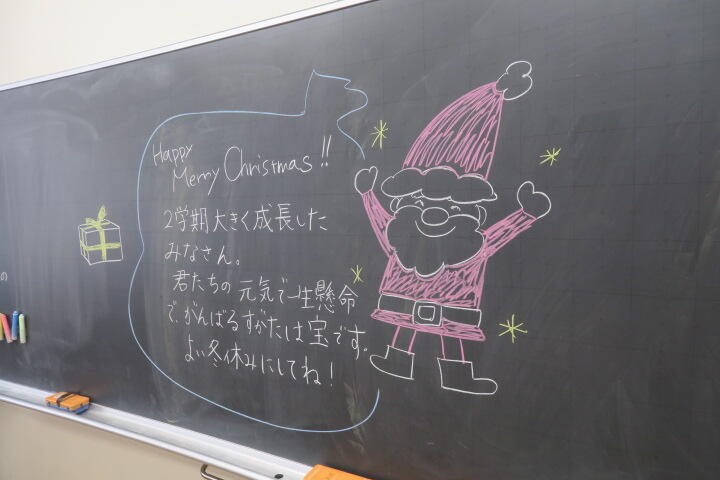 Happy
Merry Christmas!!
2学期大きく成長した
みなさん。
君たちの元気で一生懸命
で、がんばるすがたは宝です。
よい冬休みにしてね!
の